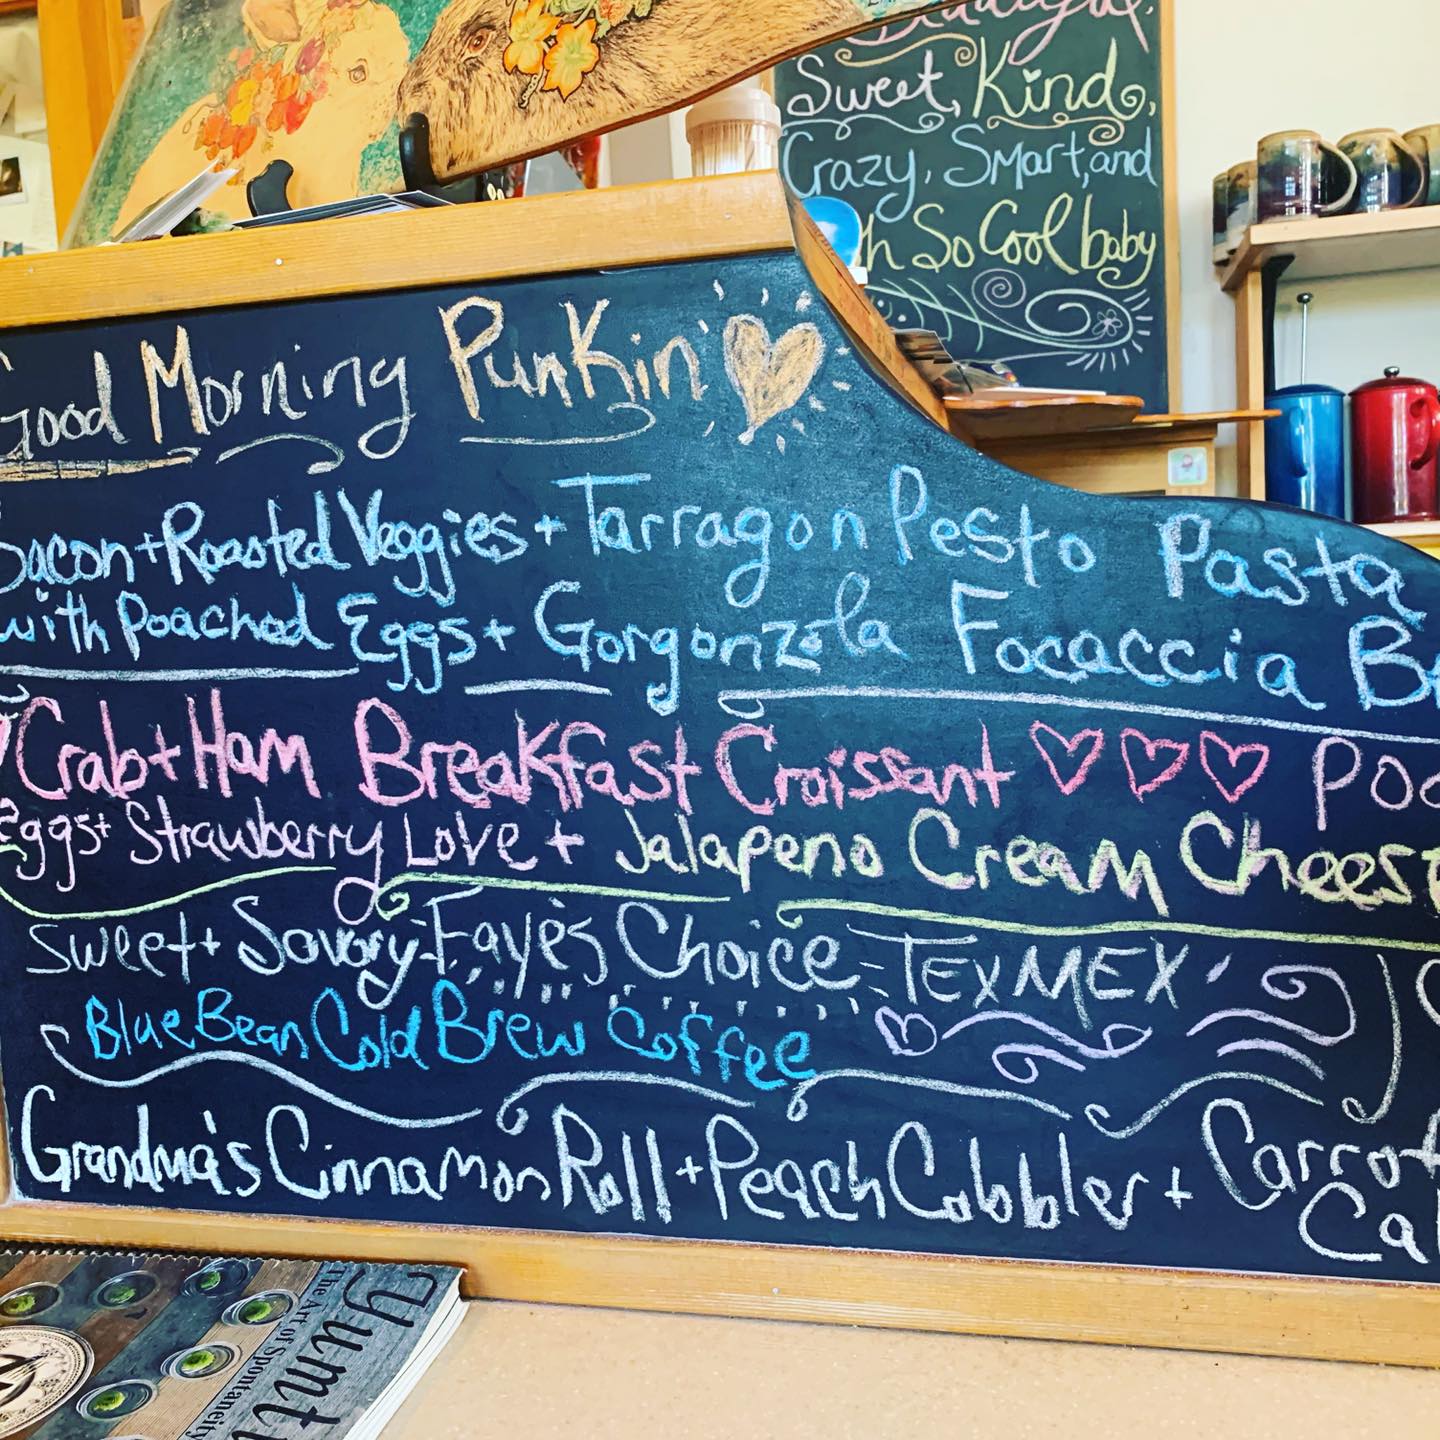 Beautiful,
Sweet, Kind,
Crazy, Smart, and
Oh So Cool baby
Good Morning Punkin
Bacon + Roasted Veggies + Tarragon Pesto Pasta
with Poached Eggs + Gorgonzola Focaccia
Crab + Ham Breakfast Croissant
Eggs + Strawberry Love + Jalapeno Cream Cheese
Sweet + Savory - Faye's Choice = TEXMEX
Blue Bean Cold Brew Coffee
Grandma's Cinnamon Roll + Peach Cobbler + Carrot
The Art of Spontaneity